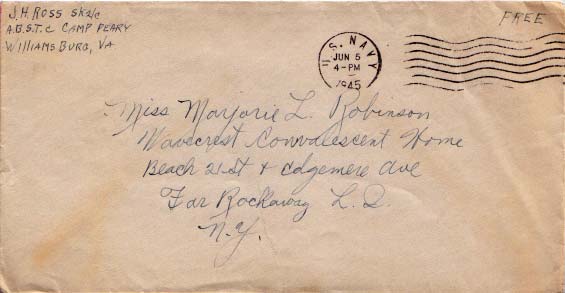 J.H. ROSS SK2/C
A.B.S.T.C CAMP PEARY
WILLIAMSBURG, VA
FREE
U.S. NAVY
JUN 5
4-PM
1945
Miss Marjorie L. Robinson
Wavecrest Convalescent Home
Beach 21 St + Edgemere Ave
Far Rockaway L.I.
N.Y.